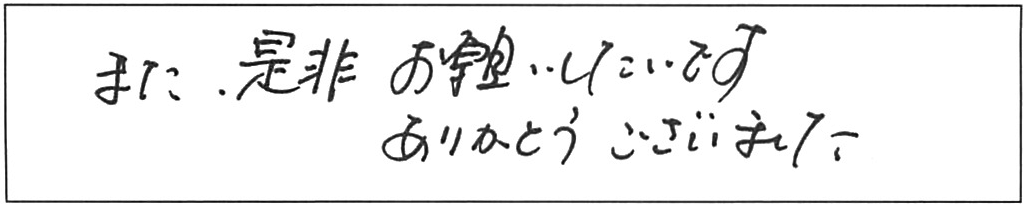 また、是非お願いしたいです
ありがとうございました